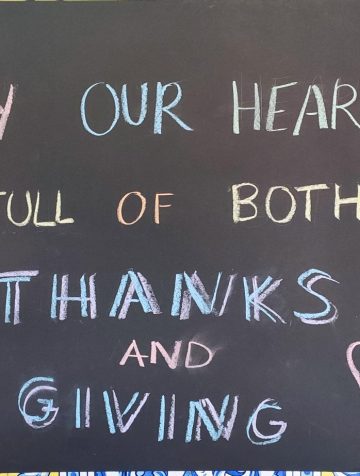 Y OUR HEAR
FULL OF BOTH
THANKS
AND
GIVING